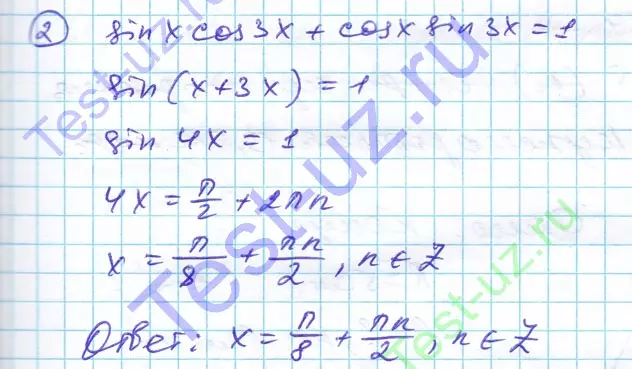 ② sin x cos 3x + cos x sin 3x = 1
sin (x + 3x) = 1
sin 4x = 1
4x = π/2 + 2πn
x = π/8 + πn/2, n ∈ Z
Ответ: x = π/8 + πn/2, n ∈ Z
Test-uz.ru
Test-uz.ru
Test-uz.ru